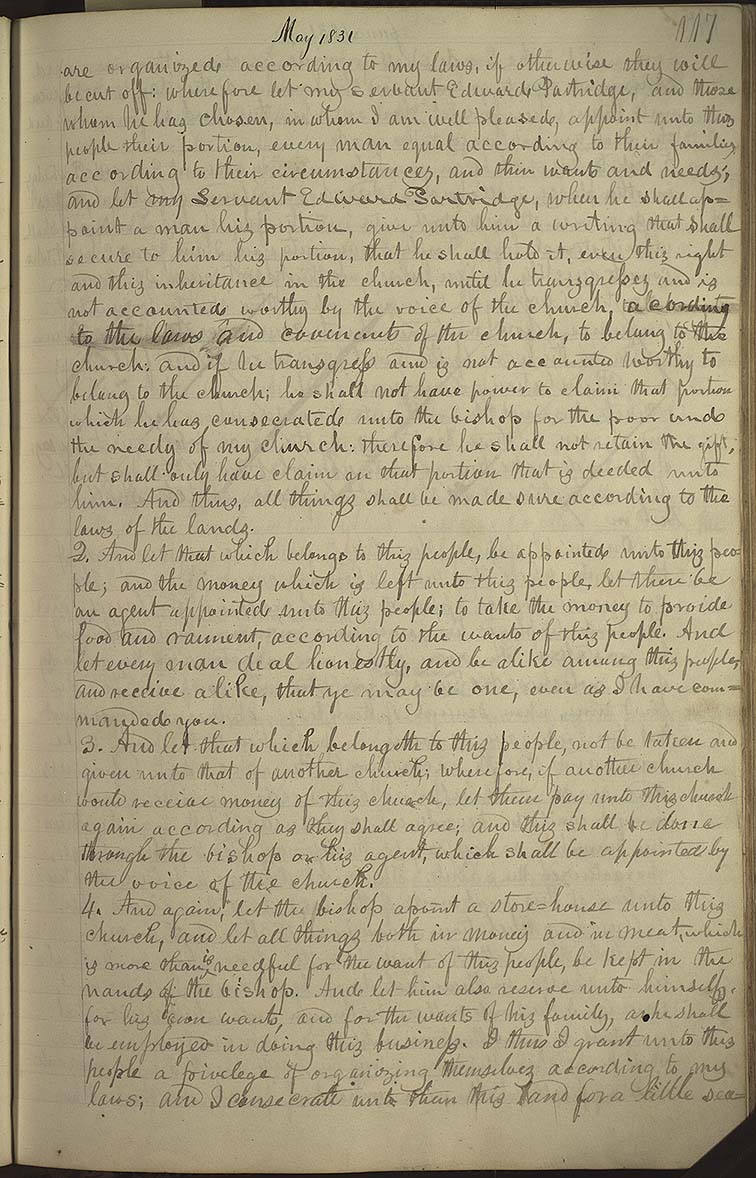 May 1831
117
are organized according to my laws, if otherwise they will
be cut off: wherefore let my servant Edward Partridge, and those
whom he has chosen, in whom I am well pleased, appoint unto this
people their portion, every man equal according to their families,
according to their circumstances, and their wants and needs;
and let my Servant Edward Partridge, when he shall ap=
point a man his portion, give unto him a writing that shall
secure to him his portion, that he shall hold it, even this right
and this inheritance in the church, until he transgresses and is
not accounted worthy by the voice of the church, according
to the laws and covenents of the church, to belong to the
church: and if he transgress and is not accounted worthy to
belong to the church; he shall not have power to claim that portion
which he has consecrated unto the bishop for the poor and
the needy of my church: therefore he shall not retain the gift,
but shall only have claim on that portion that is deeded unto
him. And thus, all things shall be made sure according to the
laws of the land.
2. And let that which belongs to this people, be appointed unto this peo=
ple; and the money which is left unto this people, let there be
an agent appointed unto this people; to take the money to provide
food and raiment, according to the wants of this people. And
let every man deal honestly, and be alike among this people,
and receive alike, that ye may be one, even as I have com=
manded you.
3. And let that which belongeth to this people, not be taken and
given unto that of another church; wherefore, if another church
would receive money of this church, let them pay unto this church
again according as they shall agree; and this shall be done
through the bishop or his agent, which shall be appointed by
the voice of the church.
4. And again, let the bishop apoint a store=house unto this
church, and let all things both in money and in meat, which
is more than is needful for the want of this people, be kept in the
hands of the bishop. And let him also reserve unto himself,
for his own wants, and for the wants of his family, as he shall
be employed in doing this business. I thus I grant unto this
people a privelege of organizing themselves according to my
laws; and I consecrate unto them this land for a little sea=